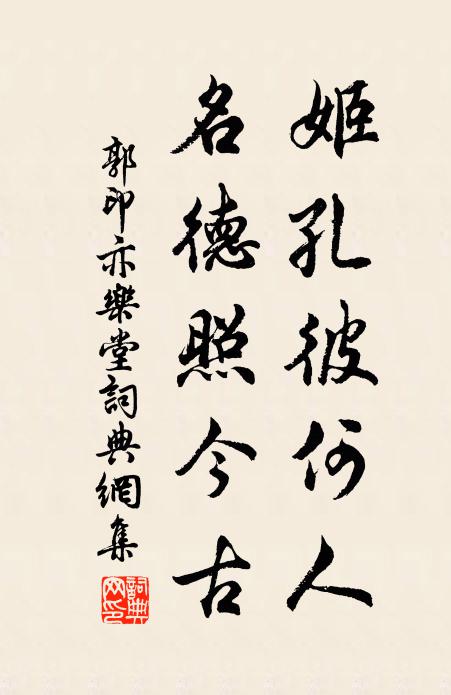 姬孔彼何人
名德照今古
郭印亦樂堂詞典網集
詞典网印